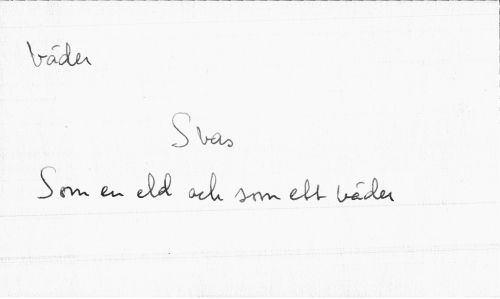 väder
Svas
Som en eld och som ett väder